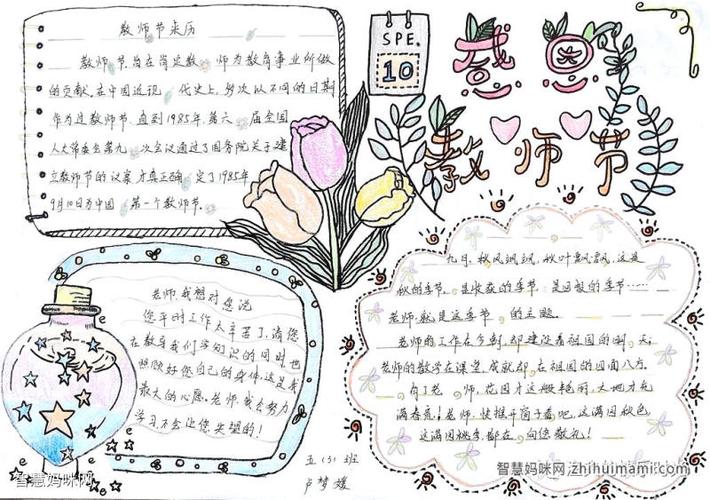 教师节来历
教师节,旨在肯定教师为教育事业所做
的贡献。在中国近现代史上,多次以不同的日期
作为过教师节。直到1985年,第六届全国
人大常委会第九次会议通过了国务院关于建
立教师节的议案,才真正确定了1985年
9月10日为中国第一个教师节。
SPE.
10
感恩
教师节
老师,我想对您说
您平时工作太辛苦了,请您
在教我们学知识的同时也
照顾好您自己的身体,这是我
最大的心愿。老师,我会努力
学习不会让您失望的!
九月,秋风飒飒,秋叶飘飘,这是
秋的季节,是收获的季节,是回报的季节……
老师就是这季节的主题。
老师的工作在今朝,却建设着祖国的明天;
老师的教学在课堂,成就却在祖国的四面八方。
有了老师,花园才这般艳丽,大地才充
满春意!老师,快推开窗子看吧,这满园秋色
这满园桃李,都在向您敬礼!
五(3)班
卢梦媛
智慧妈咪网
智慧妈咪网 zhihuimami.com